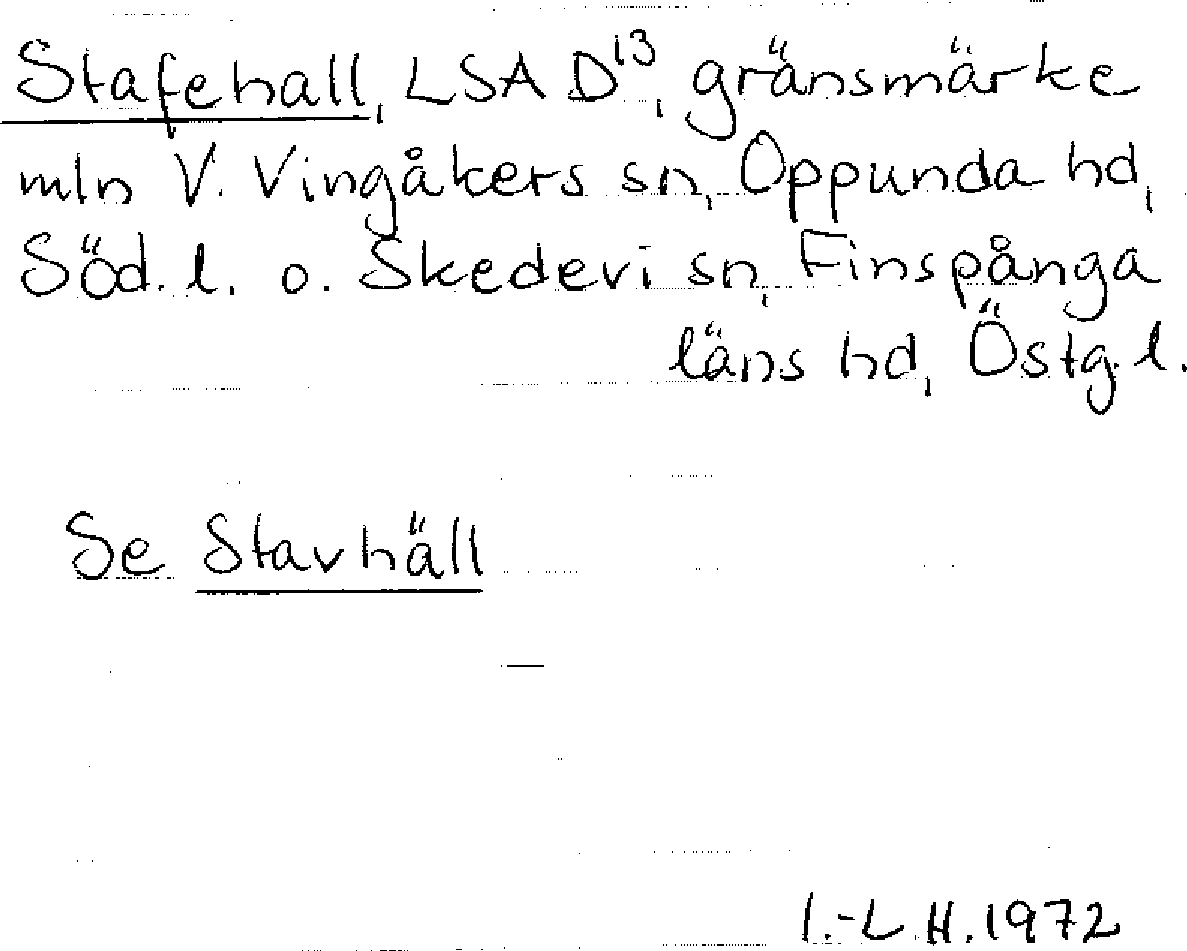 Stafehall, LSA D¹³, gränsmärke
mln V. Vingåkers sn, Oppunda hd,
Söd. l. o. Skedevi sn, Finspånga
läns hd, Östg. l.
Se Stavhäll
I.-L.H. 1972